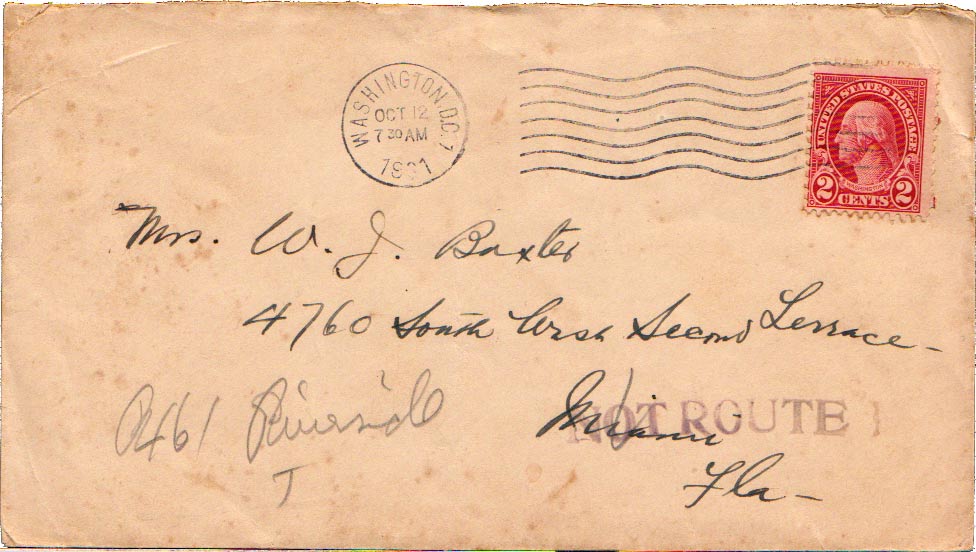 WASHINGTON, D.C. 1
OCT 12
7 30 AM
1931
UNITED STATES POSTAGE
WASHINGTON
2 CENTS 2
Mrs. W. J. Baxter
4760 South West Second Terrace -
Riverside
Miami
NOT ROUTE 1
Fla -